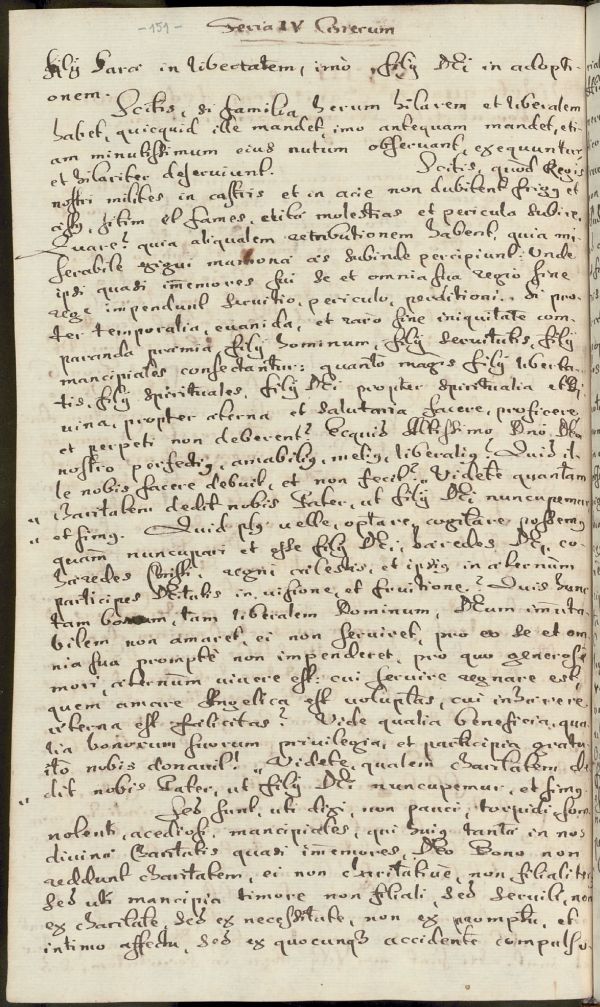 - 151 -
Feria IV Cinerum
filÿ Saræ in libertatem, imò filÿ Dei in adopti-
onem.
Scitis, si familia herum hilarem et liberalem
habet, quicquid ille mandet, imo antequam mandet, eti-
am minutissimum eius nutum observant, exequuntur
et hilariter deserviunt. Scitis, quòd Regis
nostri milites in castris et in acie non dubitent frigus et
æstus, sitim et fames, etc molestias et pericula subire,
Quare? quia aliqualem retributionem habent, quia mi-
serabile exigui mammona æs subinde percipiunt: Unde
ipsi quasi immemores sui se et omnia sua regio sine
rege impendunt servitio, periculo, perditioni. Si pro-
ter temporalia, evanida, et raro sine iniquitate com-
paranda præmia filÿ hominum, filÿ servitutis, filÿ
mancipiales consectantur: quantò magis filÿ liberta-
tis, filÿ spirituales, filÿ Dei propter spiritualia et di
vina, propter æterna et salutaria facere, proficere
et perpeti non deberent? Ecquis Altissimo Dno Deo
nostro perfectius, amabilius, melius, liberalius? Quis il-
le nobis facere debuit, et non fecit? „Videte quantam
„ Charitatem dedit nobis Pater, ut filÿ Dei nuncupemur
„ et simus. Quid plus velle, optare, cogitare possemus
quam nuncupari et esse filÿ Dei, hæredes Dei, co-
hæredes Christi, regni cælestis, et ipsius in æternum
participes Deitatis in visione, et fruitione? Quis hunc
tam bonum, tam liberalem Dominum, Deum immuta-
bilem non amaret, ei non serviret, pro eo se et om
nia sua promptè non impenderet, pro quo generosè
mori, æternùm vivere est: cui servire regnare est,
quem amare Angelica est voluptas, cui inhærere
æterna est fælicitas? Vide qualia beneficia, qua
lia bonorum suorum privilegia, et participia gratu
itò nobis donavit! „Videte, qualem charitatem de
dit nobis Pater, ut filÿ Dei nuncupemur, et simus.
„ Sed sunt, uti dixi, non pauci, torpidi, som
nolenti, acediosi, mancipiales, qui huius tantæ in nos
divinæ Charitatis quasi immemores, Deo Bono non
reddunt charitatem, ei non charitativè, non filialiter
sed uti mancipia timore non filiali, sed servili, non
ex charitate, sed ex necessitate, non ex promptu, et
intimo affectu, sed ex quocunque accidente compulso